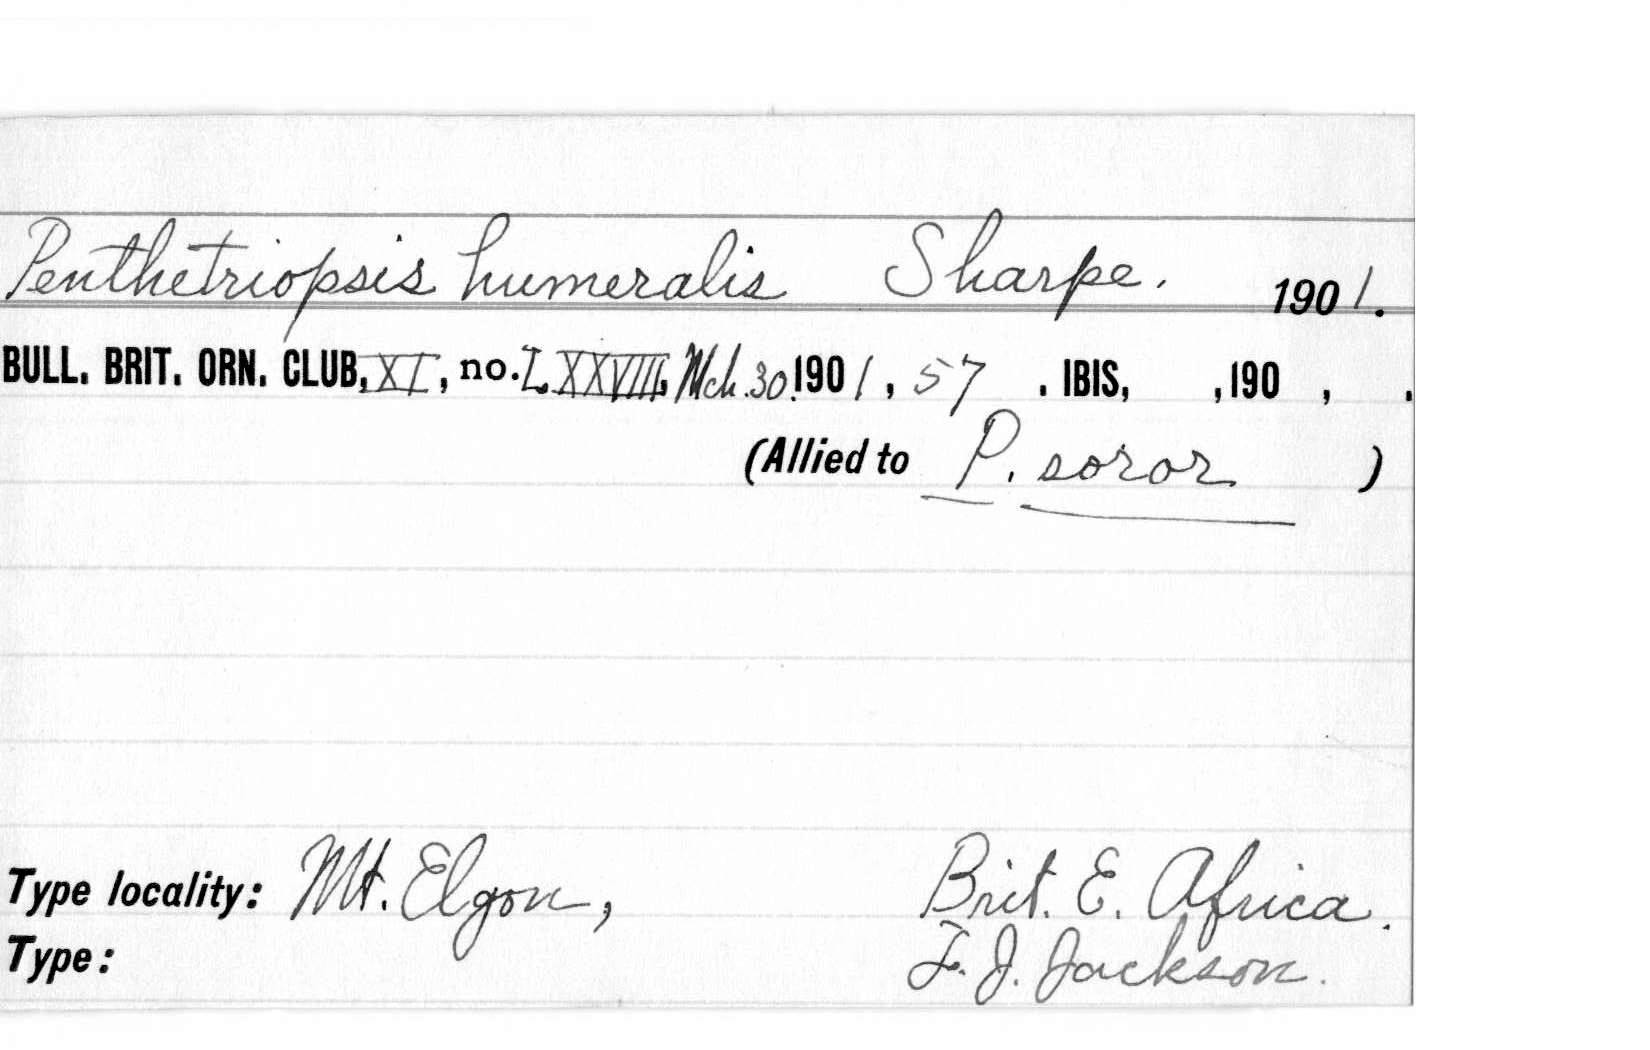 Penthetriopsis humeralis Sharpe. 1901.
BULL. BRIT. ORN. CLUB, XI, no. LXXVIII, Mch. 30. 1901, 57 . IBIS, ,190 , .
(Allied to P. soror )
Type locality: Mt. Elgon, Brit. E. Africa.
Type: F. J. Jackson.